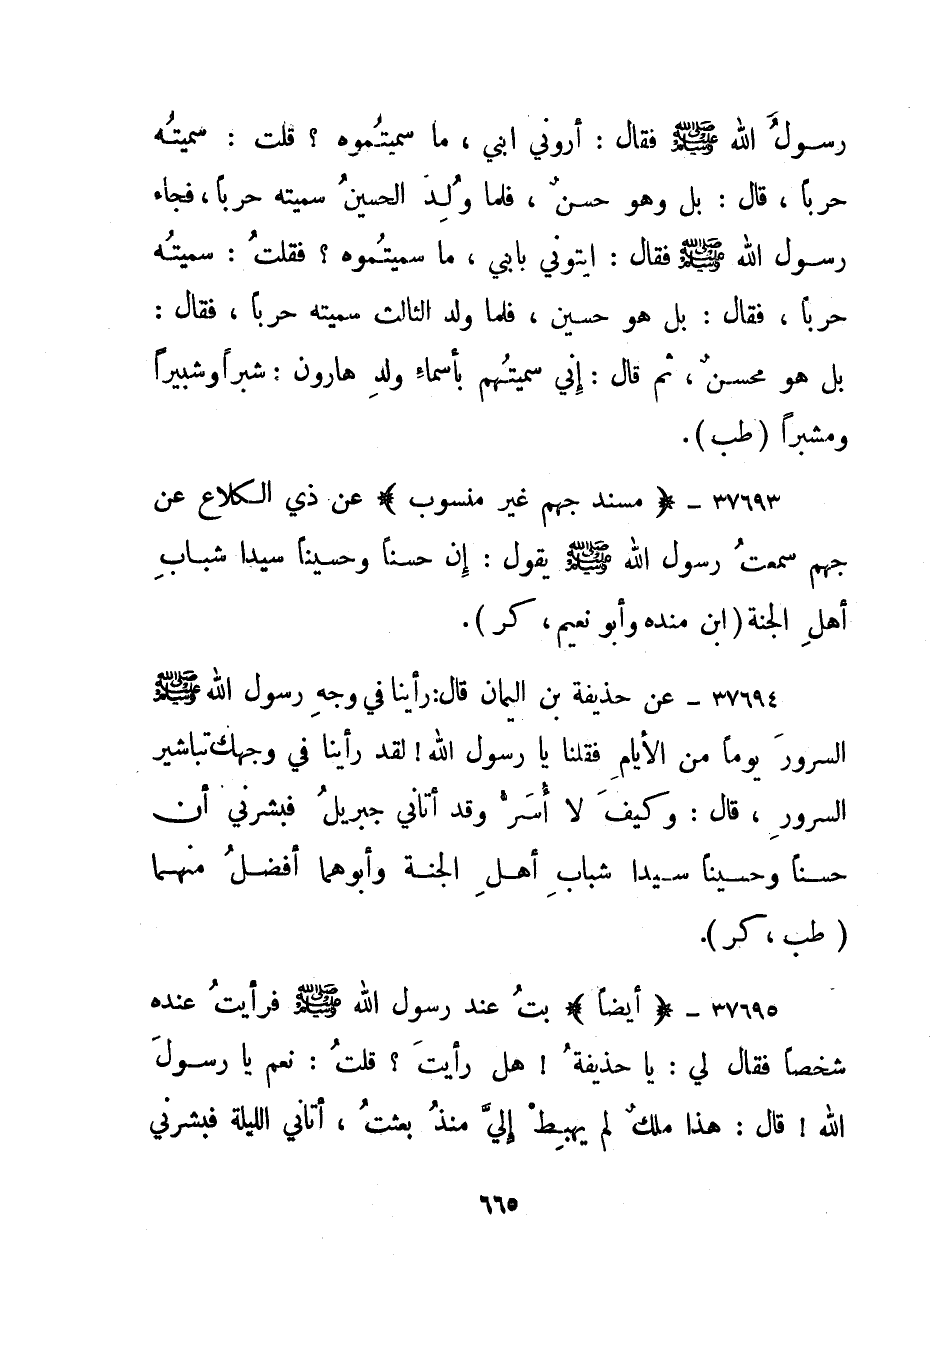 رسولُ الله ﷺ فقال : أروني ابني ، ما سميتُموه ؟ قلت : سميتُه
حرباً ، قال : بل وهو حسنٌ ، فلما وُلِدَ الحسينُ سميته حرباً ، فجاء
رسول الله ﷺ فقال : ايتوني بابني ، ما سميتُموه ؟ فقلتُ : سميتُه
حرباً ، فقال : بل هو حسين ، فلما ولد الثالث سميته حرباً ، فقال :
بل هو محسنٌ ، ثم قال : إني سميتُهم بأسماءِ ولدِ هارون : شبراً وشبيراً
ومشبراً ( طب ) .
٣٧٦٩٣ ـ ﴿ مسند جهم غير منسوب ﴾ عن ذي الكلاع عن
جهم سمعتُ رسول الله ﷺ يقول : إن حسناً وحسيناً سيدا شبابِ
أهلِ الجنة ( ابن منده وأبو نعيم ، كر ) .
٣٧٦٩٤ ـ عن حذيفة بن اليمان قال : رأينا في وجهِ رسول الله ﷺ
السرورَ يوماً من الأيامِ فقلنا يا رسول الله ! لقد رأينا في وجهك تباشير
السرورِ ، قال : وكيفَ لا أُسَرُّ وقد أتاني جبريلُ فبشرني أن
حسناً وحسيناً سيدا شبابِ أهلِ الجنة وأبوهما أفضلُ منهما
( طب ، كر ) .
٣٧٦٩٥ ـ ﴿ أيضاً ﴾ بتُ عند رسول الله ﷺ فرأيتُ عنده
شخصاً فقال لي : يا حذيفةُ ! هل رأيتَ ؟ قلتُ : نعم يا رسولَ
الله ! قال : هذا ملكٌ لم يهبِطْ إليَّ منذُ بعثتُ ، أتاني الليلة فبشرني
٦٦٥